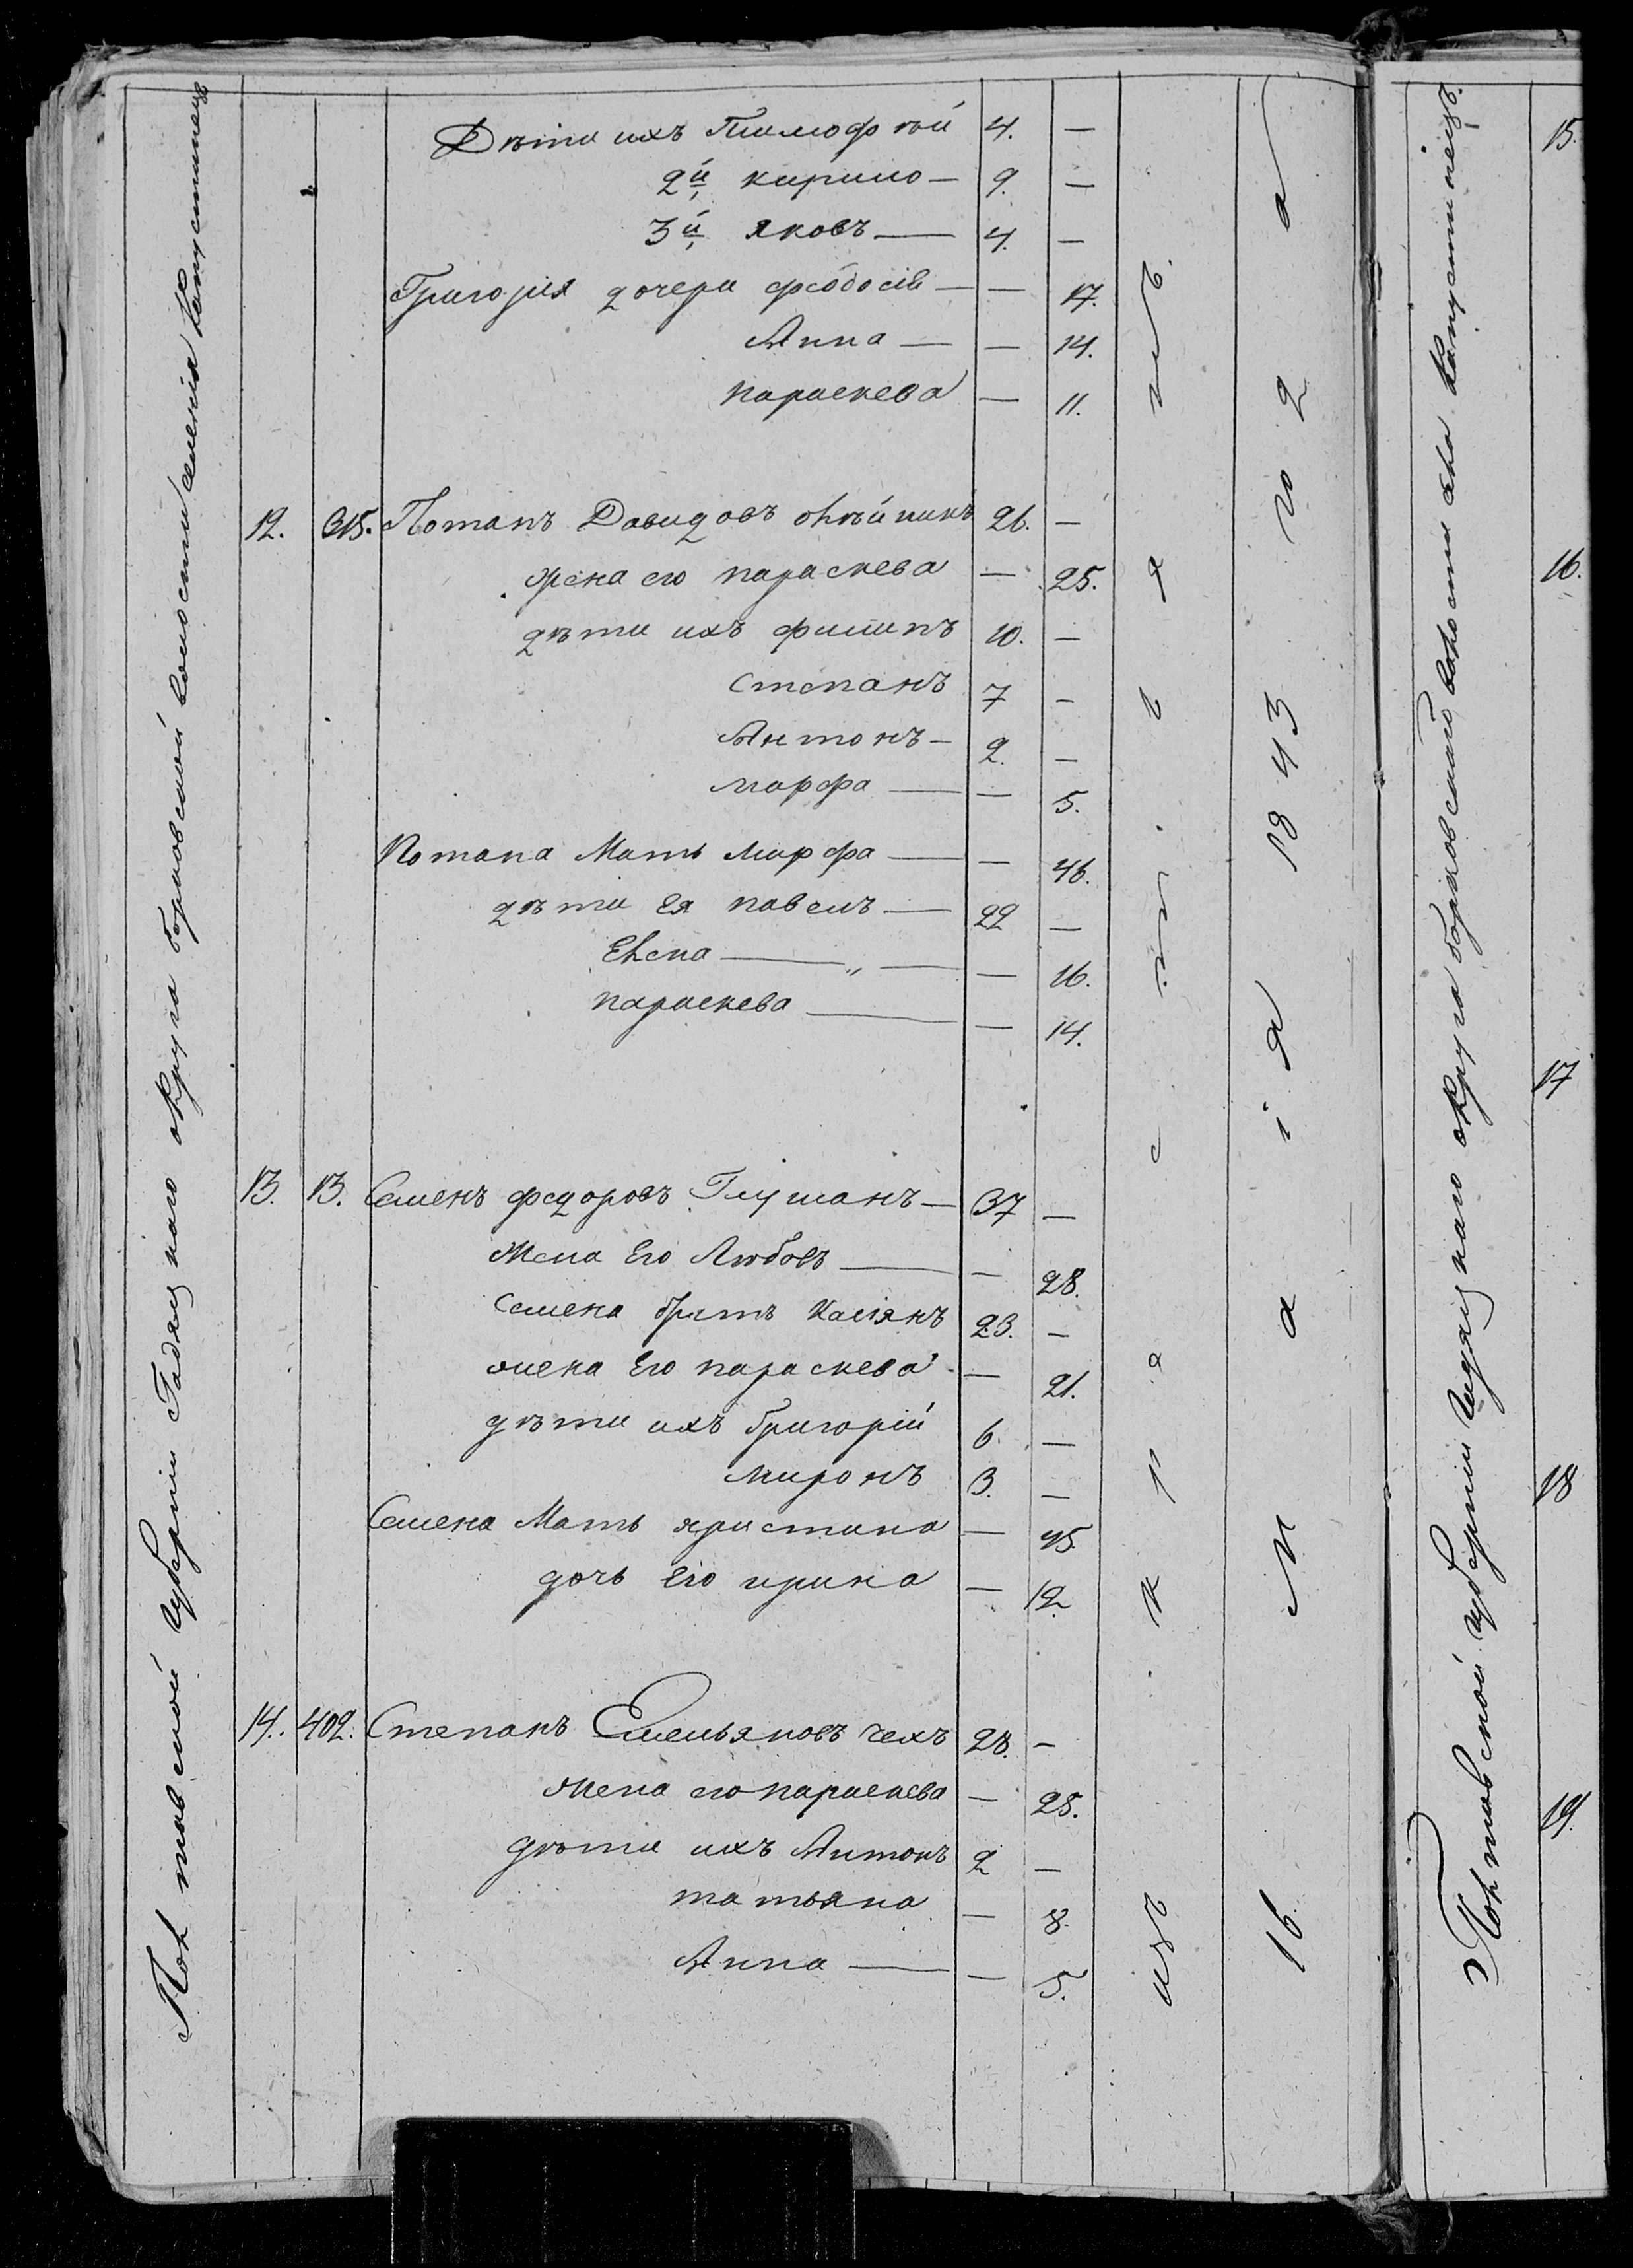 Полтавской губерніи Гадяцкаго округа борковской волости селенія Капустинецъ
Дѣти ихъ Тимофѣй 4. —
2й кирило — 9. —
3й яковъ — 4. —
Григорія дочери феодосія — — 17.
Анна — — 14.
параскева — 11.
12. 315. Потапъ Давидовъ олѣйникъ 26. —
жена его параскева — 25.
дѣти ихъ филипъ 10. —
степанъ 7 —
Антонъ — 2. —
марфа — — 5.
Потапа Мать марфа — — 46.
дѣти Ея павелъ — 22 —
Елена — „ — — 16.
параскева — — 14.
13. 13. Семенъ федоровъ Глушанъ — 37 —
Жена Его Любовъ — — 28.
Семена братъ Касіянъ 23. —
жена Его параскева — 21.
дѣти ихъ Григорій 6. —
миронъ 3. —
Семена Мать христина — 45.
дочь Его ирина — 12.
14. 402. Степанъ Емельяновъ чехъ 28. —
Жена его параскева — 25.
дѣти ихъ Антонъ 2 —
татьяна — 8.
Анна — — 5.
изъ крестьянъ.
16 Мая 1843 года
Полтавской губерніи Гадяцкаго округа борковской волости села Капустинецъ.
15.
16.
17
18
19.